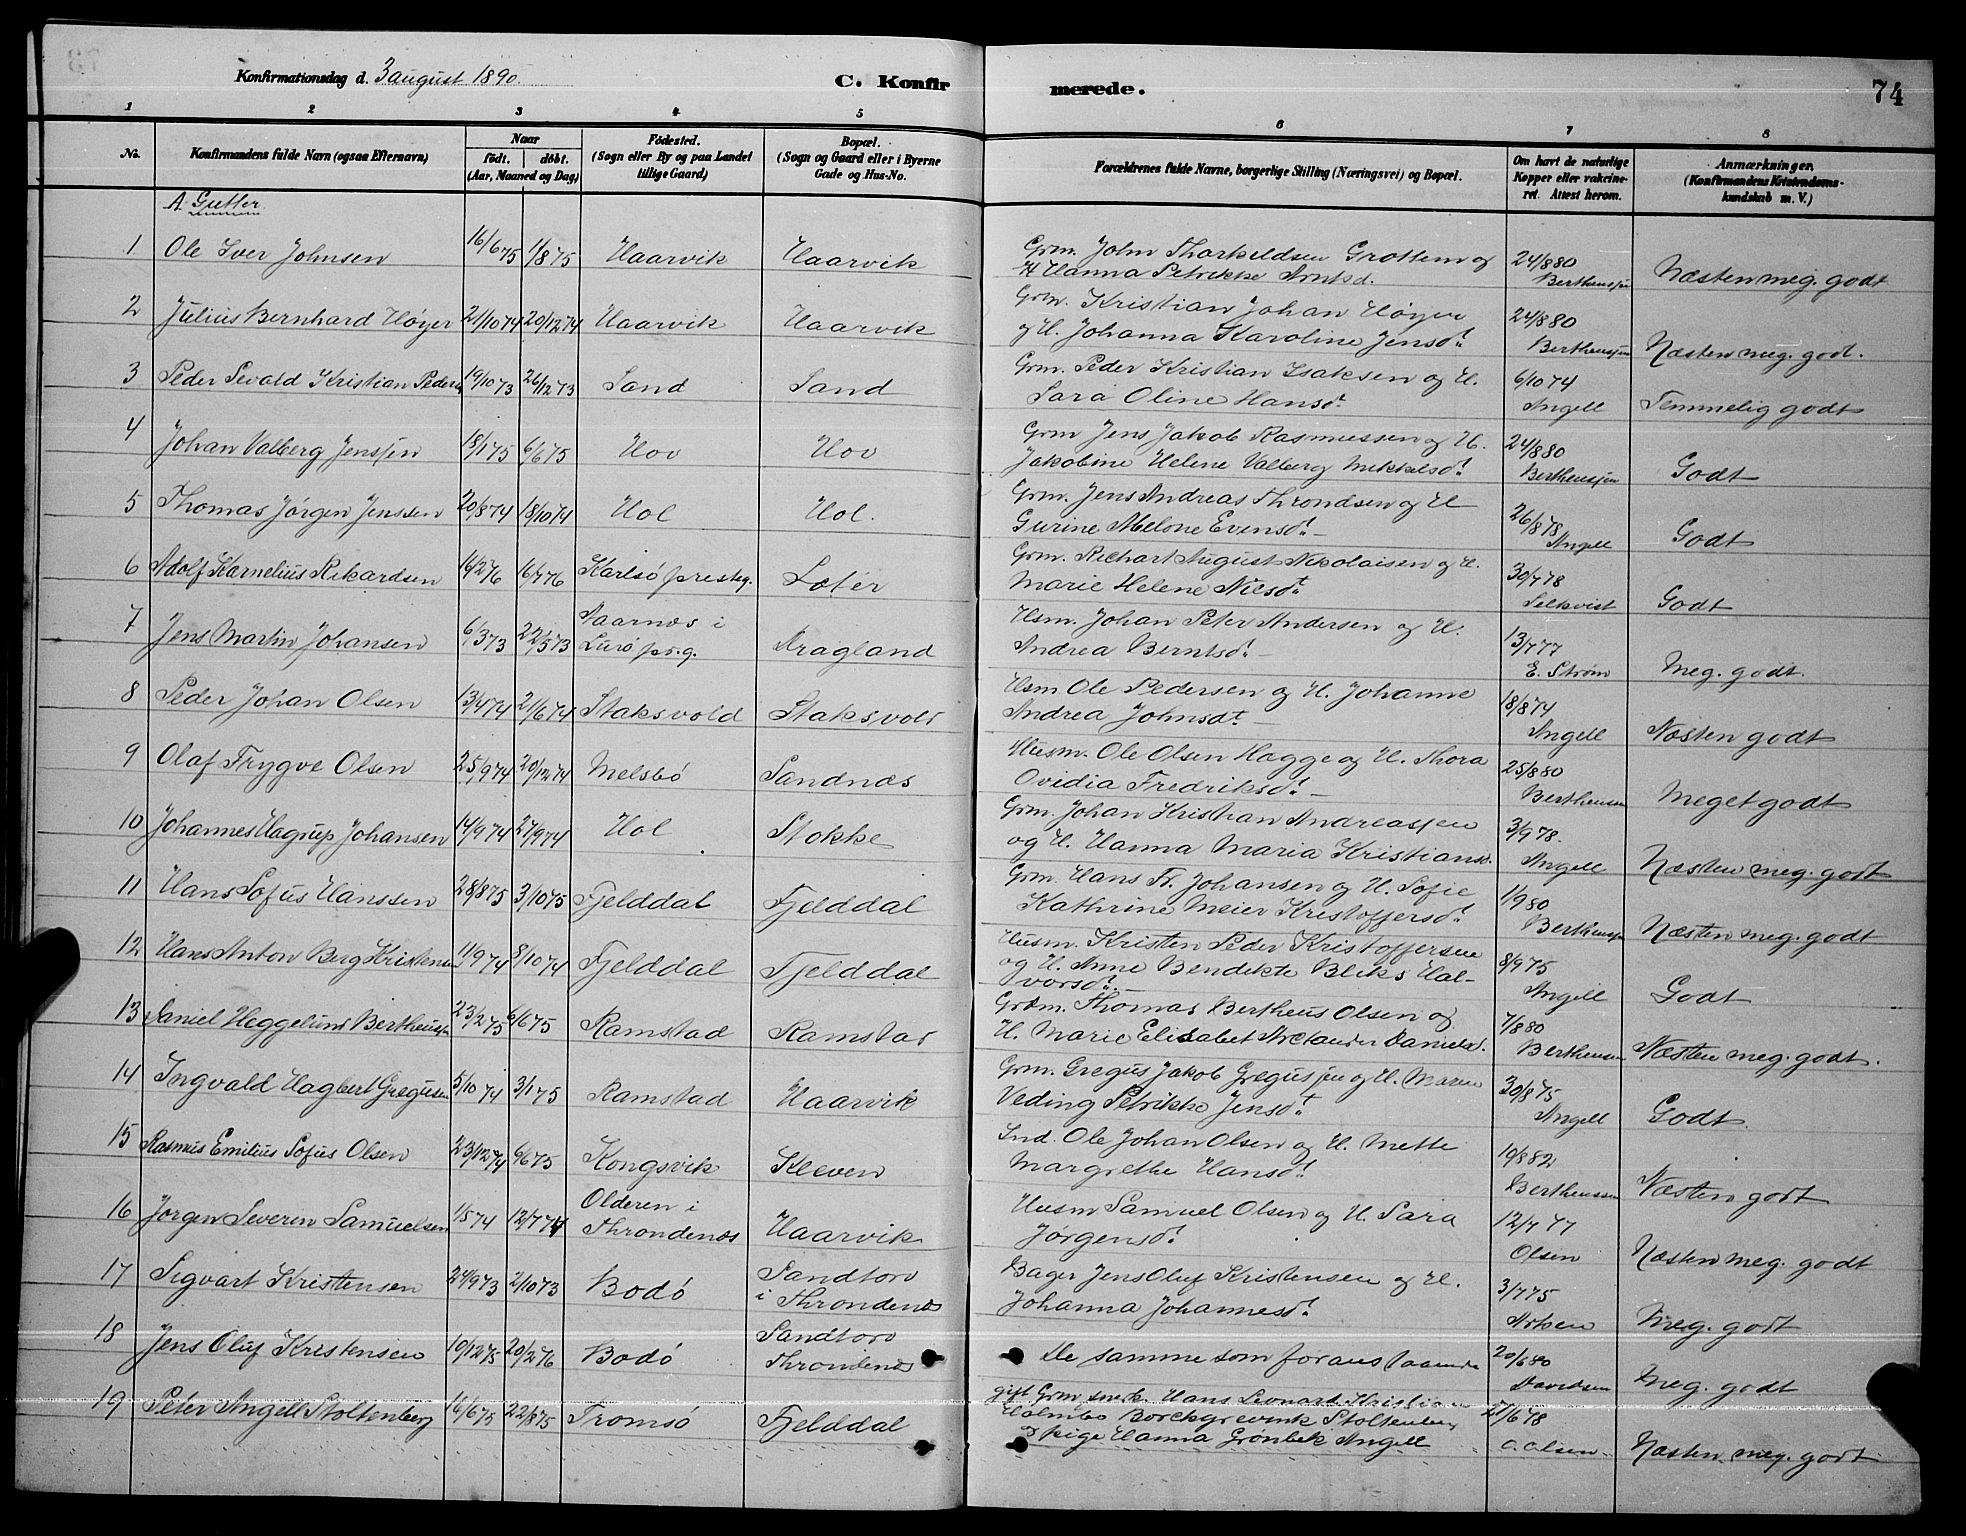 Konfirmationsdag d. 3 august 1890.
C. Konfir merede.
74
1 2 3 4 5 6 7 8
No.
Konfirmandens fulde Navn (ogsaa Efternavn)
Naar
födt. döbt.
(Aar, Maaned og Dag)
Födested.
(Sogn eller By og paa Landet
tillige Gaard)
Bopæl.
(Sogn og Gaard eller i Byerne
Gade og Hus-No.
Forældrenes fulde Navne, borgerlige Stilling (Næringsvei) og Bopæl.
Om havt de naturlige
Kopper eller vakcine-
ret. Attest herom.
Anmærkninger,
(Konfirmandens Kristendoms-
kundskab m. V.)
A. Gutter.
1 Ole Iver Johnsen 16/6 75 1/8 75 Haarvik Haarvik Grm. John Thorkeldsen Grottem og
H Hanna Petrikke Arntsd. 24/8 80 Bertheussen Næsten meg. godt
2 Julius Bernhard Høyer 21/10 74 20/12 74 Haarvik Haarvik Grm. Kristian Johan Høyer
og H. Johanna Karoline Jensdt. 24/8 80 Bertheussen Næsten meg. godt.
3 Peder Sevald Kristian Peders 19/10 73 26/12 73 Sand Sand Grm. Peder Kristian Isaksen og H.
Sara Oline Hansdt. 6/10 74 Angell Temmelig godt
4 Johan Valberg Jenssen 18/1 75 6/6 75 Hov Hov Grm Jens Jakob Rasmussen og H.
Jakobine Helene Valberg Mikkelsdt. 24/8 80 Bertheussen Godt
5 Thomas Jørgen Jenssen 20/8 74 18/10 74 Hol Hol. Grm. Jens Andreas Throndsen og H
Gurine Melone Evensdt. 26/8 78 Angell Godt
6 Adolf Karnelius Rikardsen 16/2 76 16/7 76 Karlsö presteg. Løfer Grm. Richart August Nikolaisen og H.
Marie Helene Nilsdt. 30/7 78 Selkvist Godt
7 Jens Martin Johansen 6/3 73 22/5 73 Aaarnæs i
Lurö pr.g. Aragland Hsm. Johan Peter Andersen og H.
Andrea Berntsdt. 13/7 77 E. Strøm Meg. godt.
8 Peder Johan Olsen 13/4 74 21/6 74 Staksvold Staksvold Hsm. Ole Pedersen og H. Johanne
Andrea Johnsdt. 18/8 74 Angell Næsten godt
9 Olaf Trygve Olsen 25/9 74 20/12 74 Melsbö Sandnæs Husm. Ole Olsen Hagge og H. Thora
Ovidia Fredriksdt. 25/8 80 Bertheussen Meget godt
10 Johannes Hagrup Johansen 14/9 74 27/9 74 Hol Stokke Grm. Johan Kristian Andreassen
og H. Hanna Maria Kristiansd. 3/9 78. Angell Næsten meg. godt
11 Hans Sofus Hanssen 28/8 75 3/10 75 Fjelddal Fjelddal Grm. Hans Fr. Johansen og H. Sofie
Kathrine Meier Kristoffersdt. 1/9 80 Bertheussen Næsten meg. godt
12 Hans Anton Berg Kristensen 11/9 74 8/10 74 Fjelddal Fjelddal Husm. Kristen Peder Kristoffersen
og H. Anne Bendikte Bliks Hal-
vorsdt. 8/9 75 Angell Godt
13 Daniel Heggelund Bertheussen 23/2 75 6/6 75 Ramstad Ramstad Grdm. Thomas Bertheus Olsen og
H. Marie Elisabet Arctander Danielsd. 7/8 80 Bertheussen Næsten meg. godt.
14 Ingvald Hagbert Gregusen 5/10 74 3/1 75 Ramstad Haarvik Grm. Gregus Jakob Gregussen og H. Maren
Veding Petrikke Jensdt. 30/8 75 Angell Godt
15 Rasmus Emilius Sofus Olsen 23/12 74 6/6 75 Kongsvik Kleven Ind. Ole Johan Olsen og H. Mette
Margrethe Hansdt. 19/8 82 Bertheussen Næsten godt
16 Jørgen Severin Samuelsen 1/5 74 12/7 74 Olderen i
Throndenæs Haarvik Husm Samuel Olsen og H. Sara
Jørgensdt. 12/7 77 Olsen Næsten meg. godt
17 Sigvart Kristensen 24/9 73 2/10 73 Bodö Sandtorv
i Throndenæs Bager Jens Oluf Kristensen og H.
Johanna Johannesdt. 3/7 75 Meg. godt
18 Jens Oluf Kristensen 19/12 75 20/2 76 Bodö Sandtorv
Throndenæs De samme som foranstaaende 20/6 80 Davidsen Meg. godt
19 Peter Angell Stoltenberg 16/6 75 22/8 75 Tromsö Fjelddal gift Grm snek. Hans Leonard Kristian
Holmbo Borchgrevink Stoltenberg
og pige Hanna Grønbek Angell 21/6 78 O. Olsen Næsten meg. godt